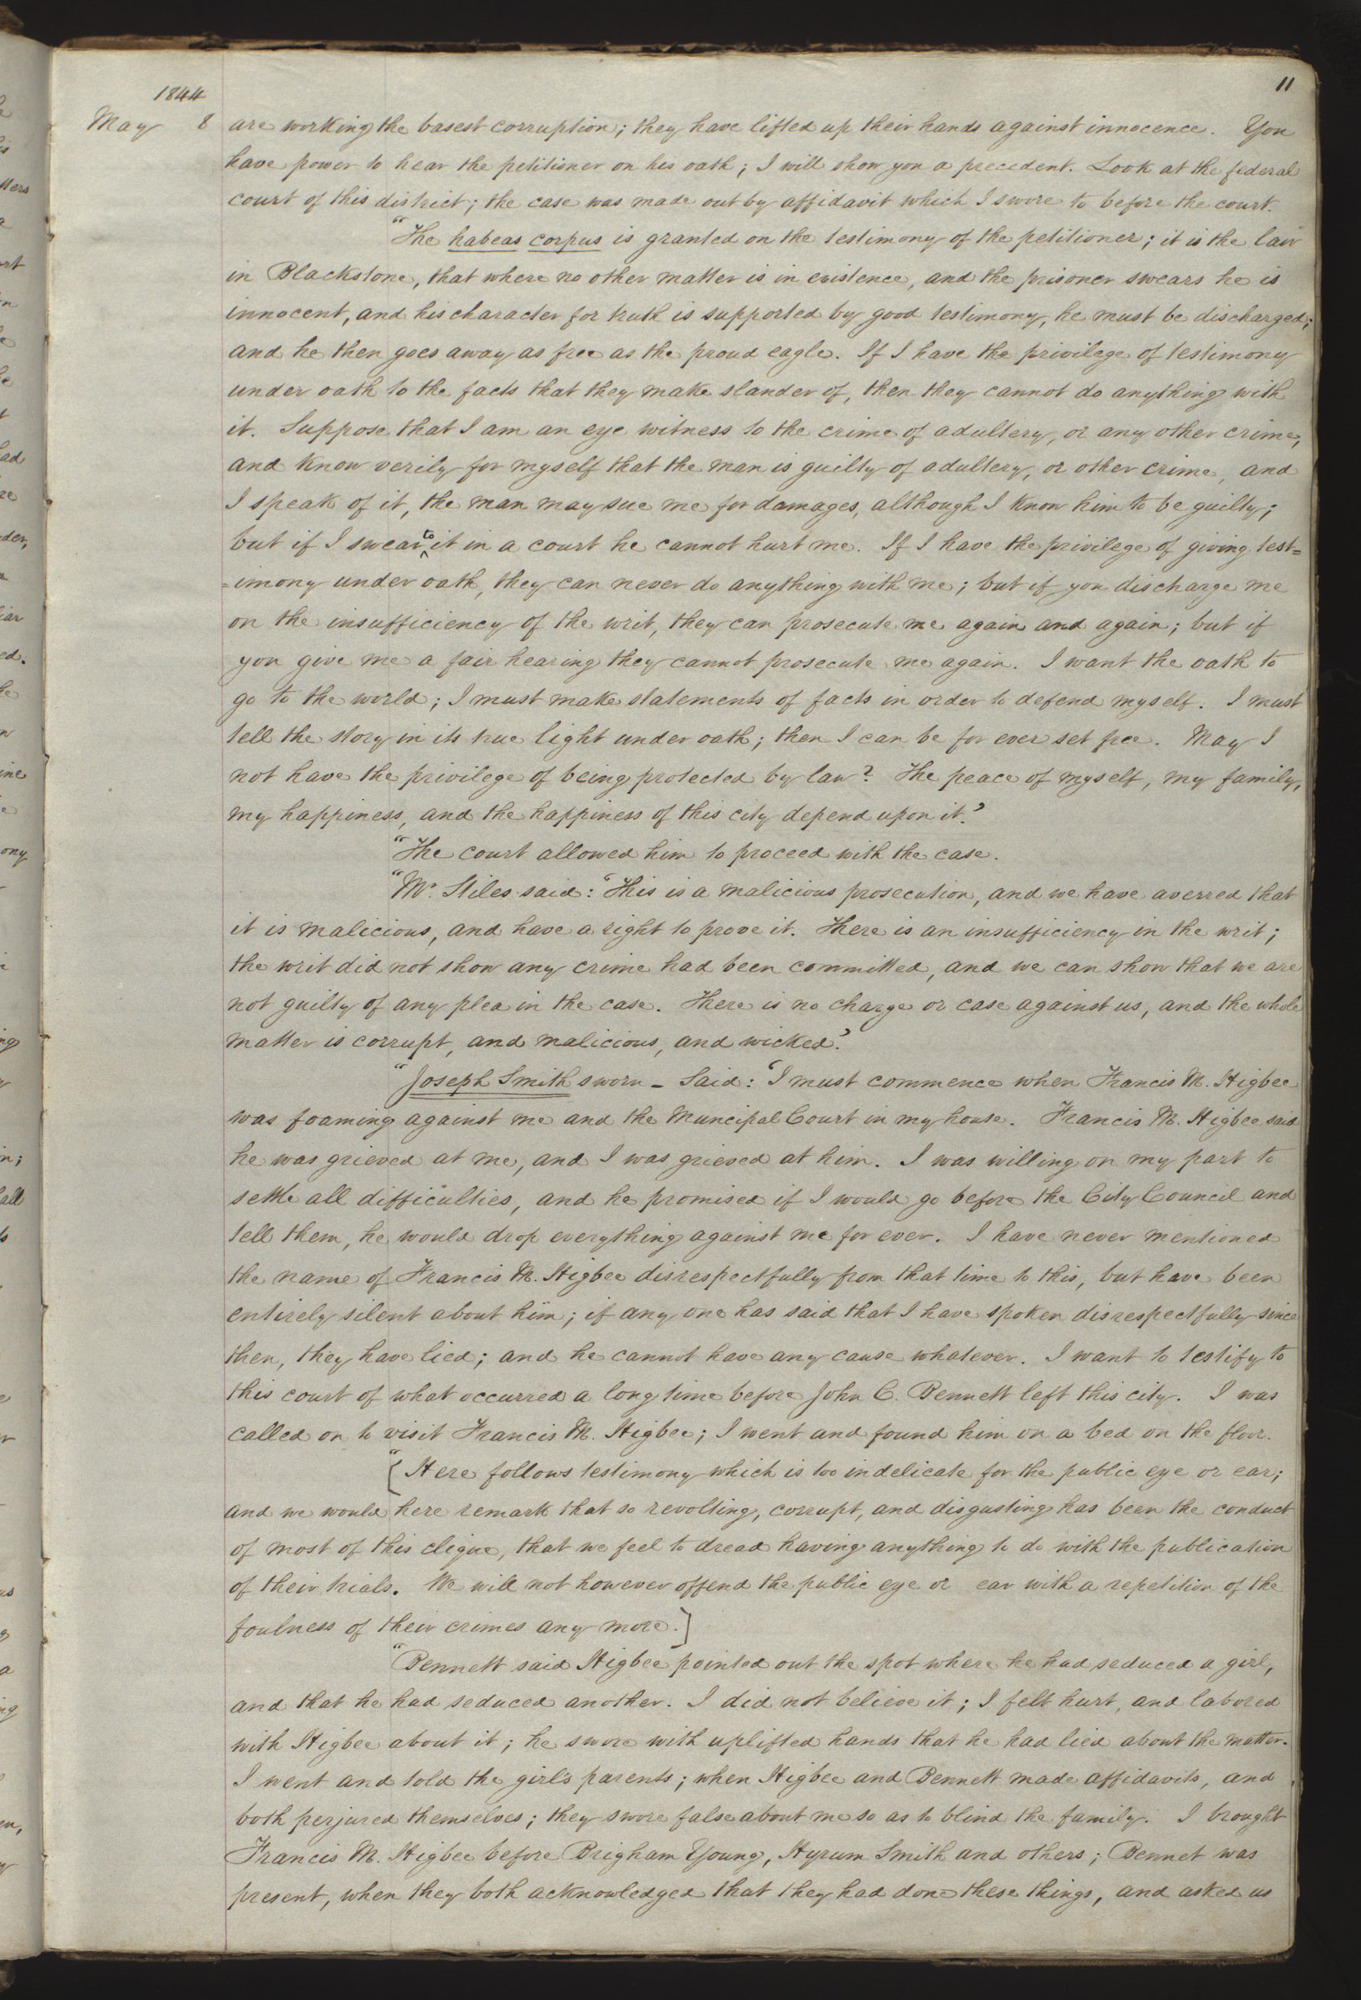 11
1844
May 8 are working the basest corruption; they have lifted up their hands against innocence. You
have power to hear the petitioner on his oath; I will show you a precedent. Look at the federal
court of this district; the case was made out by affidavit which I swore to before the court.
"The habeas corpus is granted on the testimony of the petitioner; it is the law
in Blackstone, that where no other matter is in existence, and the prisoner swears he is
innocent, and his character for truth is supported by good testimony, he must be discharged;
and he then goes away as free as the proud eagle. If I have the privilege of testimony
under oath to the facts that they make slander of, then they cannot do anything with
it. Suppose that I am an eye witness to the crime of adultery, or any other crime,
and know verily for myself that the man is guilty of adultery, or other crime, and
I speak of it, the man may sue me for damages, although I know him to be guilty;
but if I swear to it in a court he cannot hurt me. If I have the privilege of giving test=
=imony under oath, they can never do anything with me; but if you discharge me
on the insufficiency of the writ, they can prosecute me again and again; but if
you give me a fair hearing they cannot prosecute me again. I want the oath to
go to the world; I must make statements of facts in order to defend myself. I must
tell the story in its true light under oath; then I can be for ever set free. May I
not have the privilege of being protected by law? The peace of myself, my family,
my happiness, and the happiness of this city depend upon it.'
"The court allowed him to proceed with the case.
"Mr. Stiles said: 'This is a malicious prosecution, and we have averred that
it is malicious, and have a right to prove it. There is an insufficiency in the writ;
the writ did not show any crime had been committed, and we can show that we are
not guilty of any plea in the case. There is no charge or case against us, and the whole
matter is corrupt, and malicious, and wicked.'
"Joseph Smith sworn – Said: 'I must commence when Francis M. Higbee
was foaming against me and the Muncipal Court in my house. Francis M. Higbee said
he was grieved at me, and I was grieved at him. I was willing on my part to
settle all difficulties, and he promised if I would go before the City Council and
tell them, he would drop everything against me for ever. I have never mentioned
the name of Francis M. Higbee disrespectfully from that time to this, but have been
entirely silent about him; if any one has said that I have spoken disrespectfully since
then, they have lied; and he cannot have any cause whatever. I want to testify to
this court of what occurred a long time before John C. Bennett left this city. I was
called on to visit Francis M. Higbee; I went and found him on a bed on the floor.
"[Here follows testimony which is too indelicate for the public eye or ear;
and we would here remark that so revolting, corrupt, and disgusting has been the conduct
of most of this clique, that we feel to dread having anything to do with the publication
of their trials. We will not however offend the public eye or ear with a repetition of the
foulness of their crimes any more.]
"Bennett said Higbee pointed out the spot where he had seduced a girl,
and that he had seduced another. I did not believe it; I felt hurt, and labored
with Higbee about it; he swore with uplifted hands that he had lied about the matter.
I went and told the girl's parents; when Higbee and Bennett made affidavits, and
both perjured themselves; they swore false about me so as to blind the family. I brought
Francis M. Higbee before Brigham Young, Hyrum Smith and others; Bennet was
present, when they both acknowledged that they had done these things, and asked us